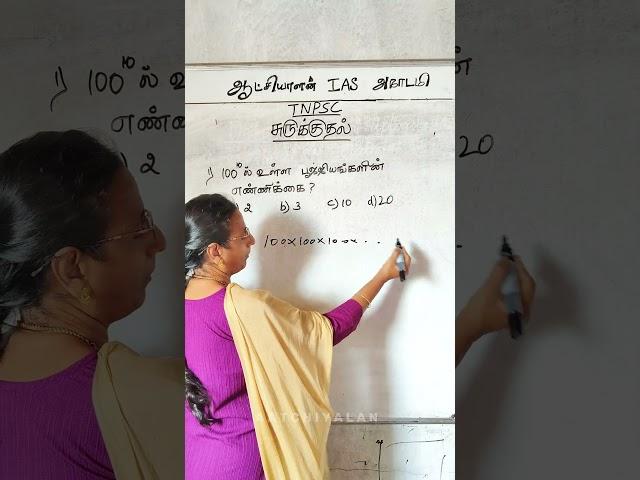 ஆட்சியாளன் IAS அகாடமி
TNPSC
சுருக்குதல்
1) 100¹⁰ல் உள்ள பூஜ்ஜியங்களின்
எண்ணிக்கை?
2 b) 3 c) 10 d) 20
100×100×100× . .
ATCHIYALAN